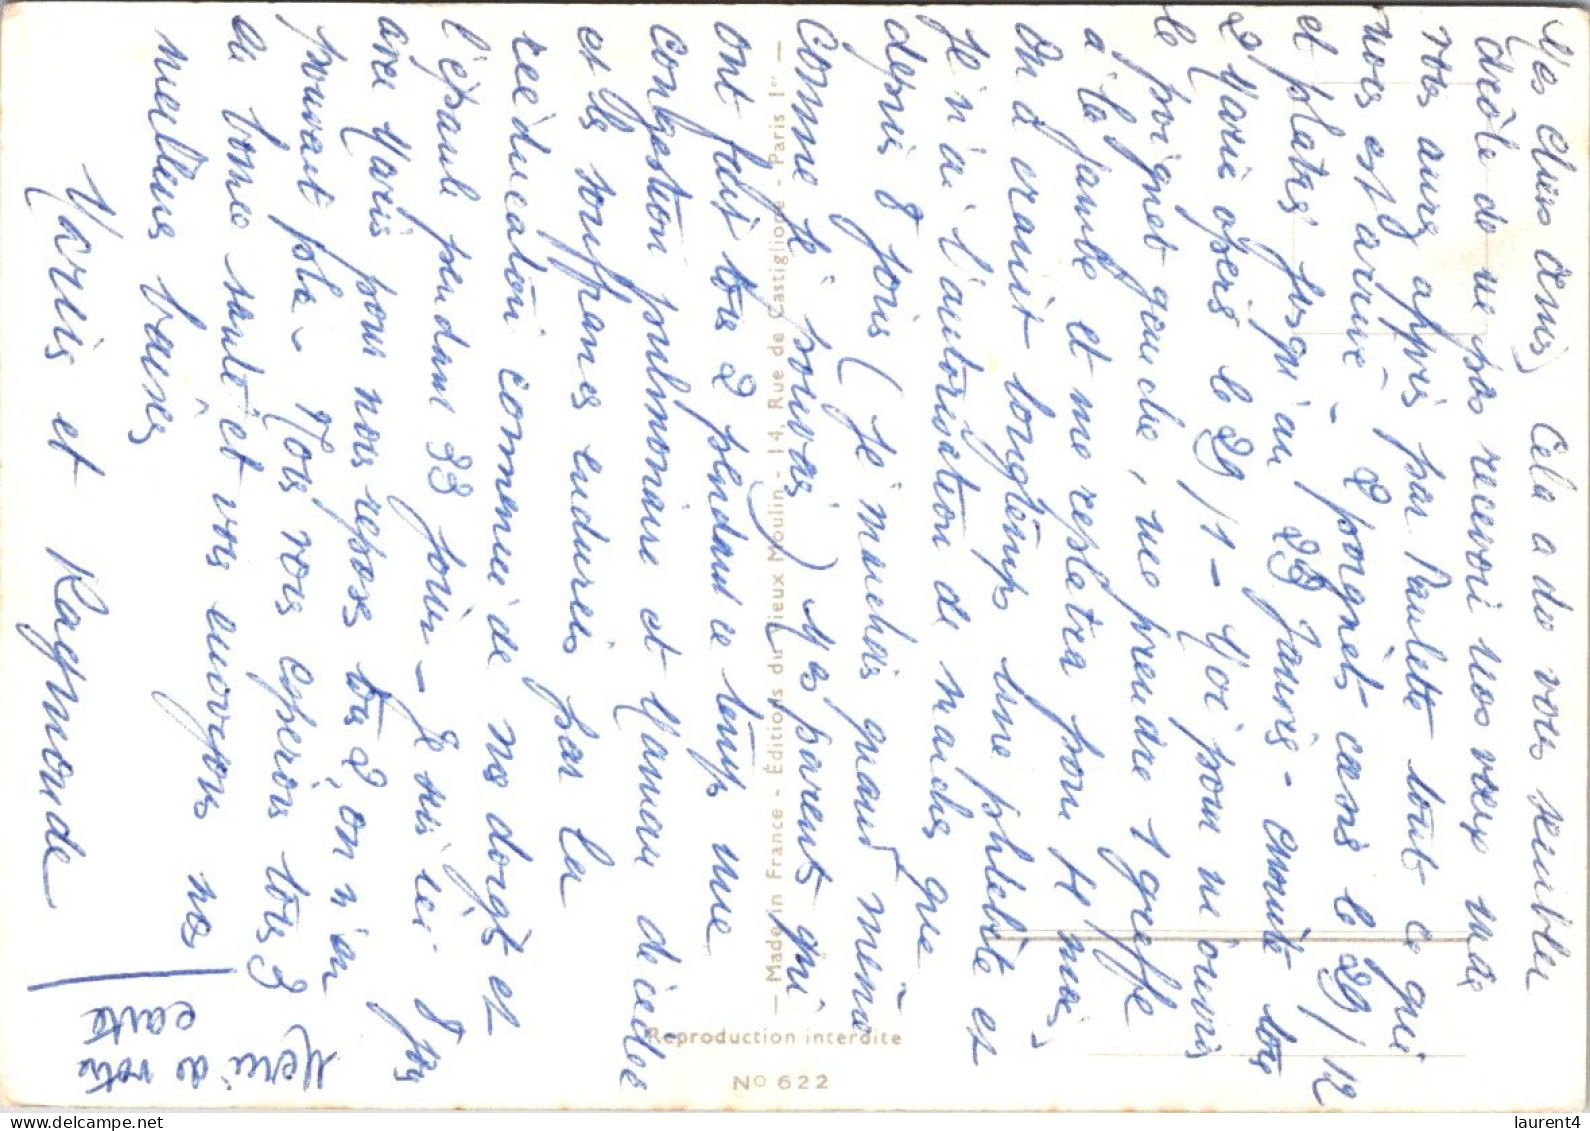 Mes chers amis, Cela a du vous sembler
drôle de ne pas recevoir nos vœux mais
vous aurez appris par Paulette tout ce qui
nous est arrivé - 2 poignets cassés le 29/12
et platrés jusqu'au 23 Janvier - ensuite tous
2 Maris opérés le 29/1 - Moi pour me ouvrir
le poignet gauche, me prendre 1 greffe
à la jambe et me replatra pour 4 mois
On a craint longtemps une phlébite et
je n'ai l'autorisation de marcher que
depuis 8 jours (Je marchais quand même
comme je pouvais) Mes parents qui
ont fait tous 2 pendant ce temps une
congestion pulmonaire et Maman décédée
et les souffrances endurées par la
rééducation commune de nos doigts et
l'épaule pendant 33 jours - Je suis ici 8 jrs
avec Maris pour nous reposer tous 2, on n'en
pouvait plus - Nous vous espérons tous 3
en bonne santé et vous envoyons nos
meilleurs baisers
Maris et Raymonde
Merci de votre
carte
— Made in France - Éditions du Vieux Moulin - 14, Rue de Castiglione - Paris 1er —
Reproduction interdite
No 622
delcampe.net
laurent4